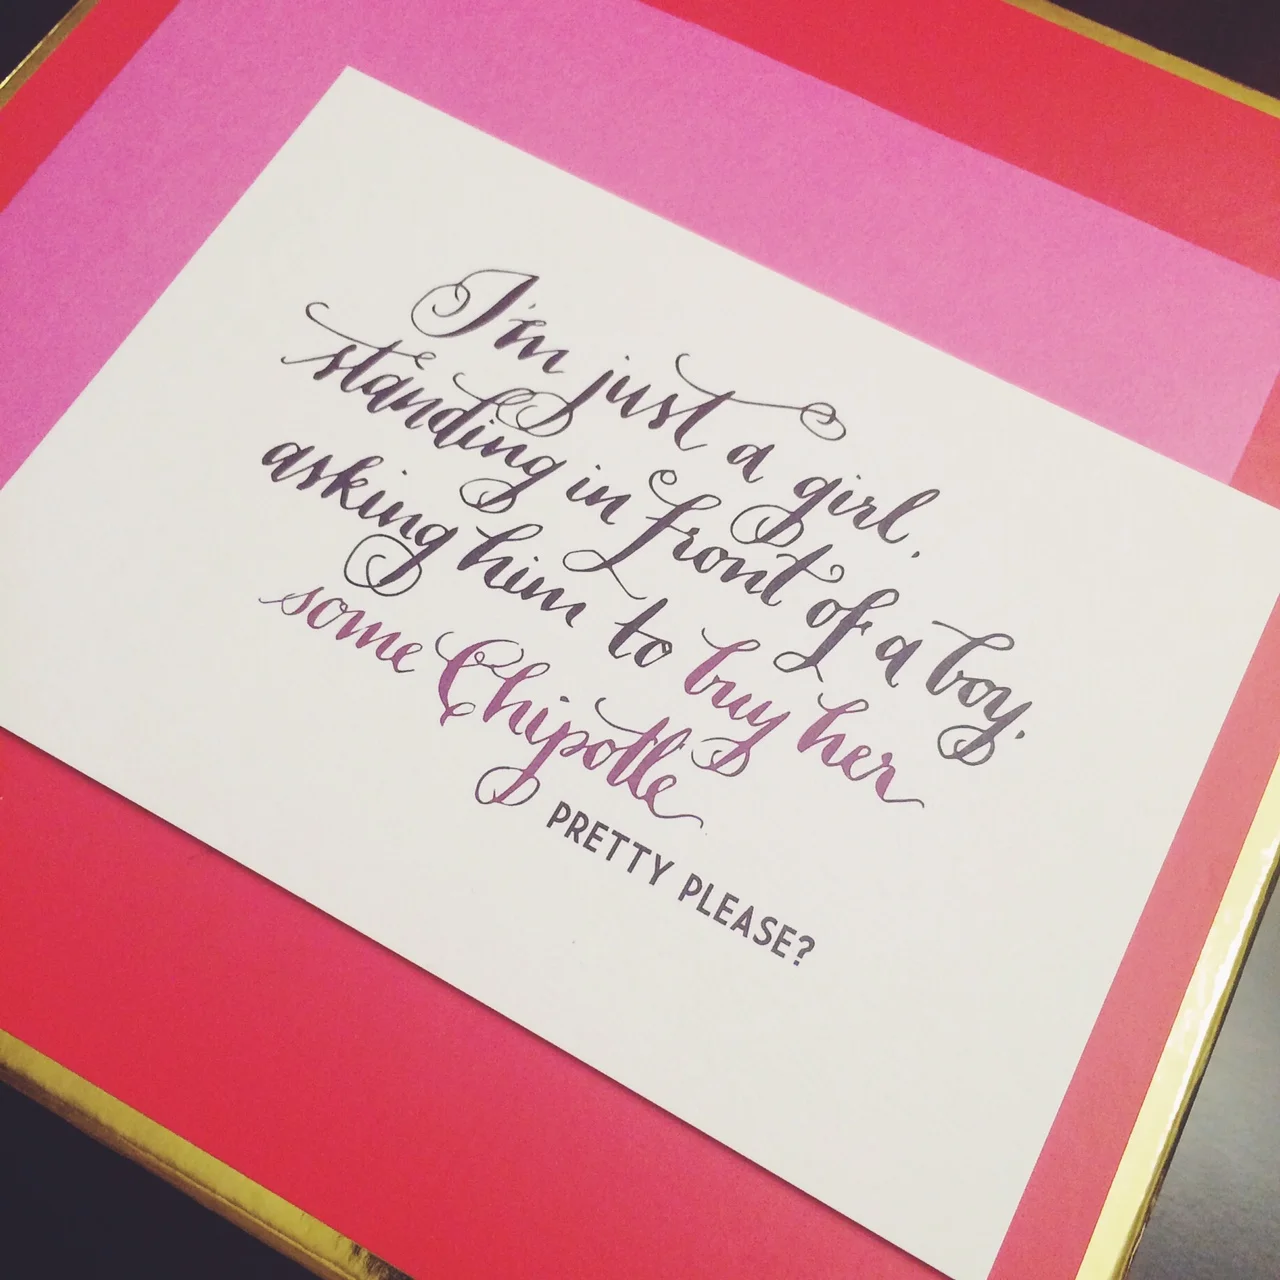 I'm just a girl,
standing in front of a boy,
asking him to buy her
some Chipotle
PRETTY PLEASE?